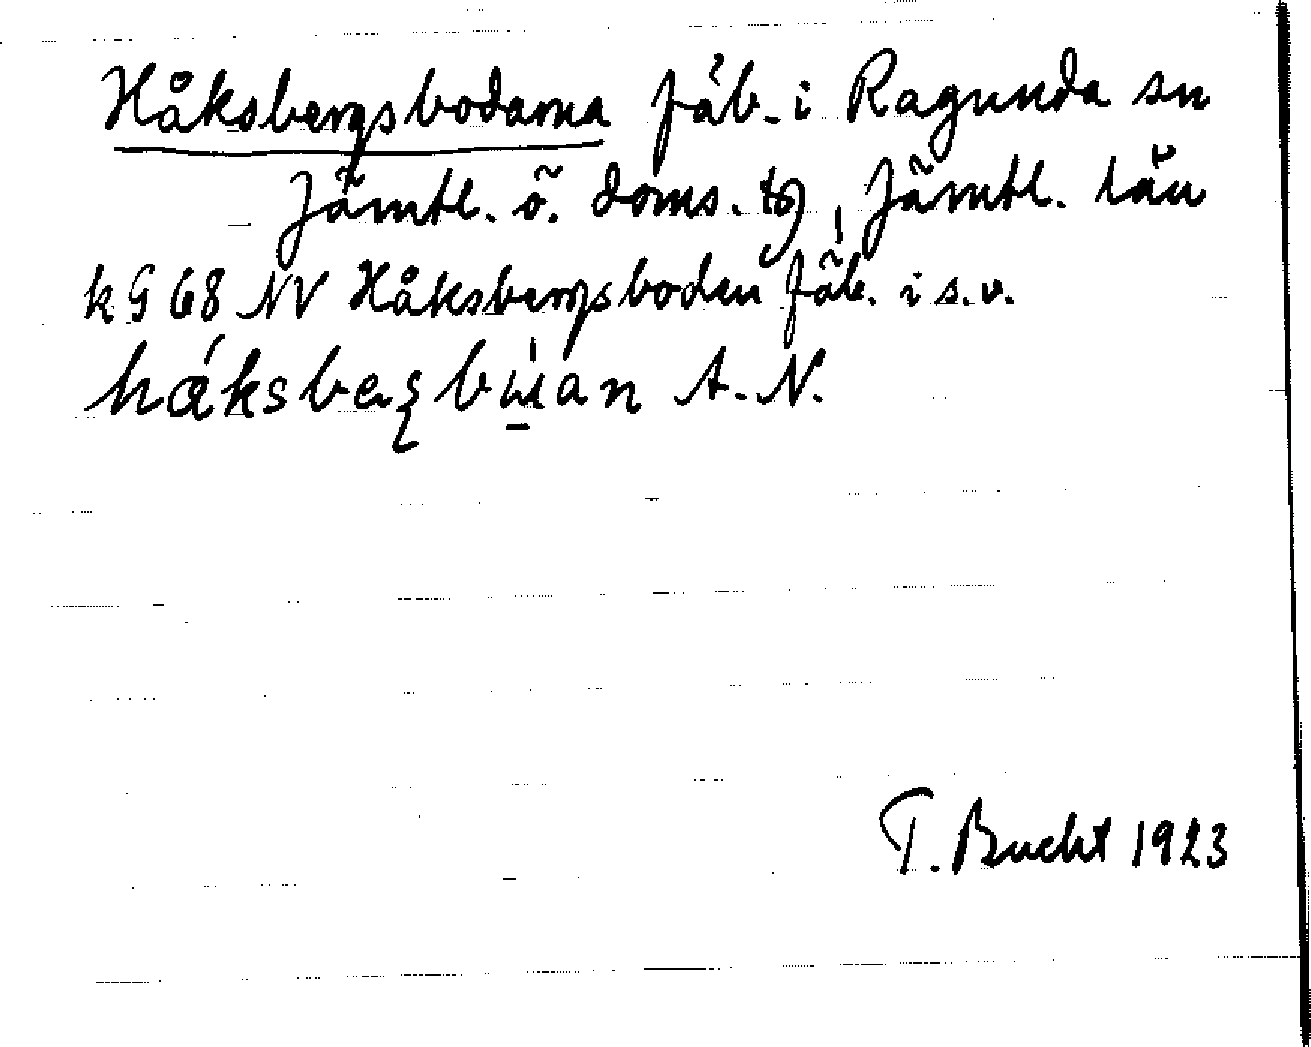 Håksbergsbodarna fäb. i Ragunda sn
Jämtl. ö. doms. tg, Jämtl. län
k G 68 NV Håksbergsboden fäb. i s.v.
A. N.
T. Bucht 1923